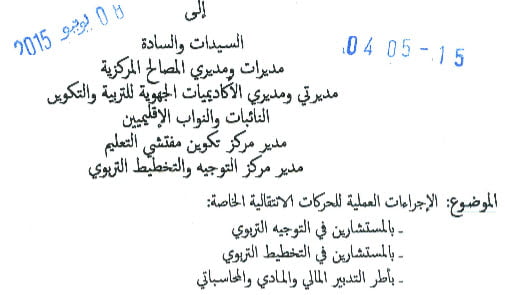 إلى
08 يونيو 2015
04 05 - .15
السيدات والسادة
مديرات ومديري المصالح المركزية
مديرتي ومديري الأكاديميات الجهوية للتربية والتكوين
النائبات والنواب الإقليميين
مدير مركز تكوين مفتشي التعليم
مدير مركز التوجيه والتخطيط التربوي
الموضوع: الإجراءات العملية للحركات الانتقالية الخاصة:
ـ بالمستشارين في التوجيه التربوي
ـ بالمستشارين في التخطيط التربوي
ـ بأطر التدبير المالي والمادي والمحاسباتي